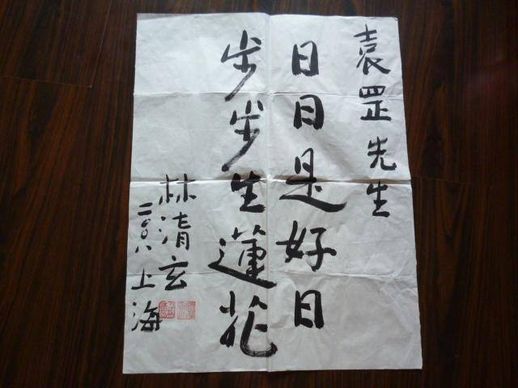 袁罡先生
日日是好日
步步生蓮花
林清玄
二〇〇八上海